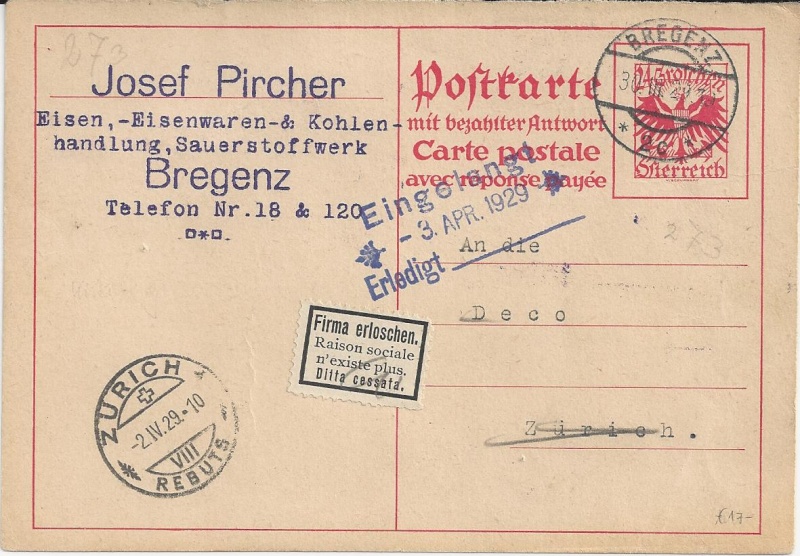 273
Josef Pircher
Eisen,-Eisenwaren-& Kohlen-
handlung, Sauerstoffwerk
Bregenz
Telefon Nr.18 & 120
Postkarte
mit bezahlter Antwort
Carte postale
avec réponse payée
BREGENZ
* 2c *
24 Groschen
Österreich
Eingelangt
- 3. APR. 1929
Erledigt
273
An die
Deco
Zürich.
Firma erloschen.
Raison sociale
n'existe plus.
Ditta cessata.
ZÜRICH
-2.IV.29.-10
VIII
REBUTS
€17-